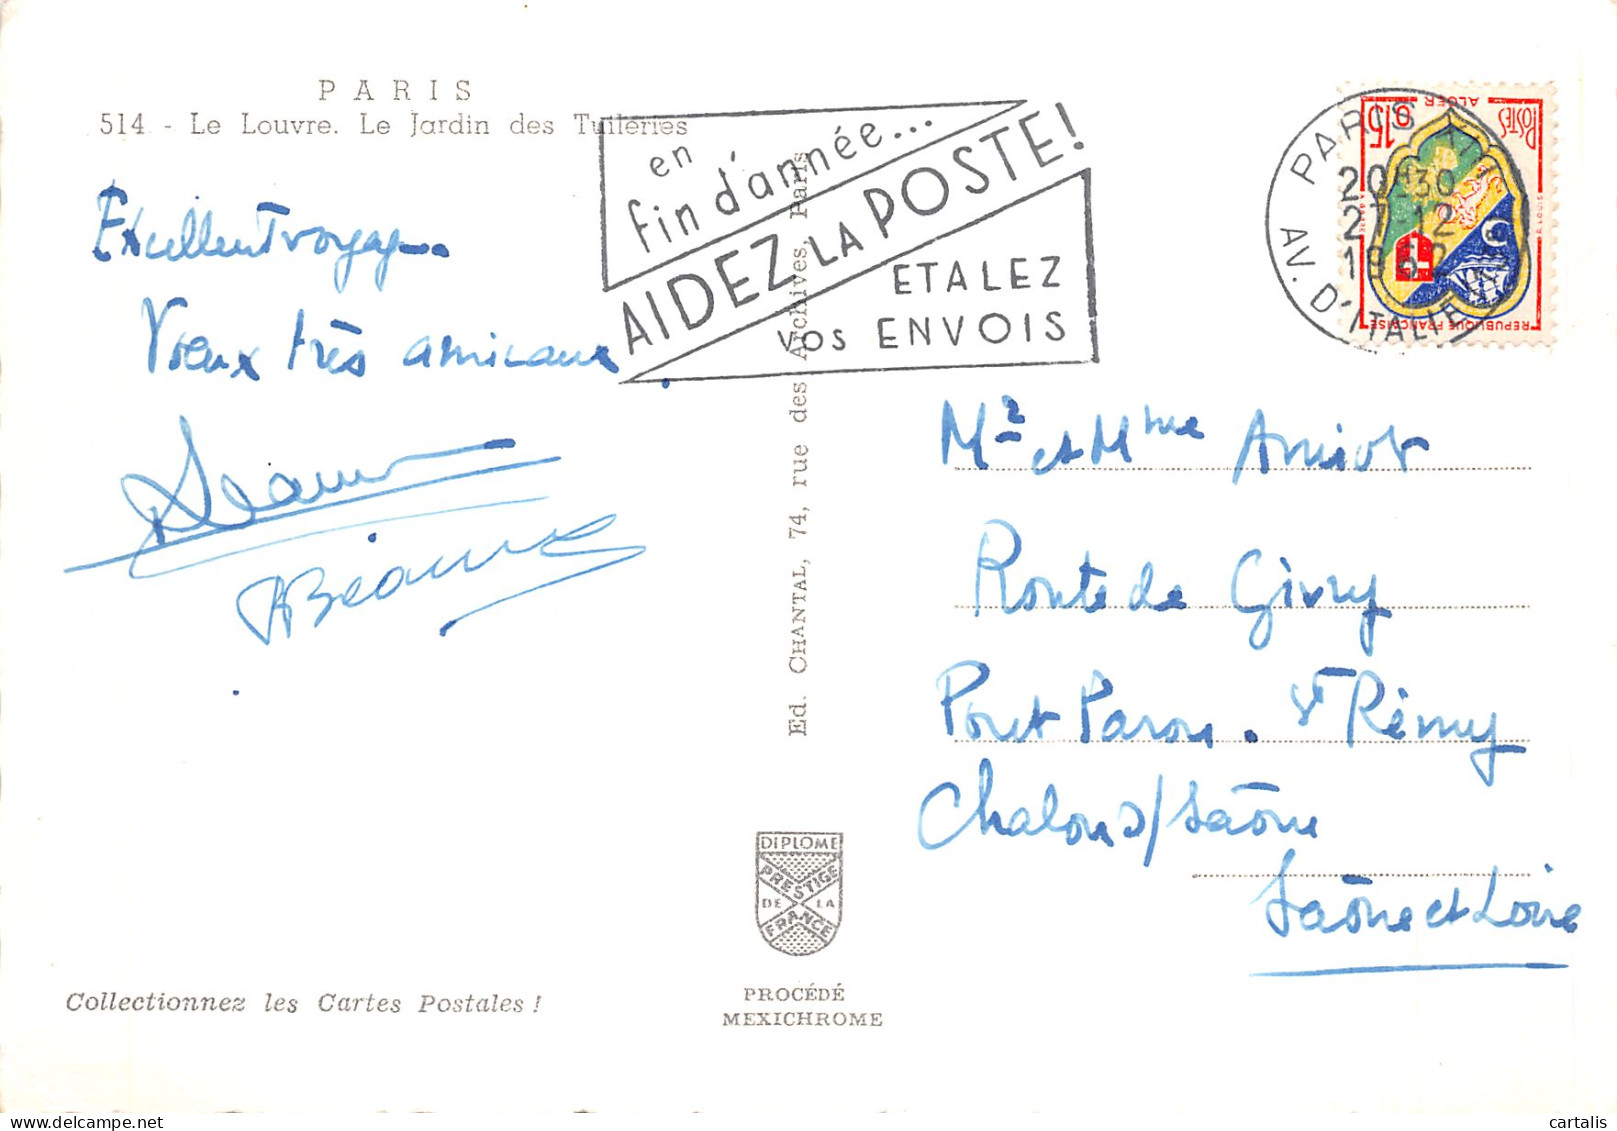 PARIS
514 - Le Louvre. Le Jardin des Tuileries
Excellent voyage.
Voeux très amicaux.
en
fin d'année...
AIDEZ LA POSTE!
ETALEZ
VOS ENVOIS
PARIS XIII
20H30
27-12
1962
AV. D'ITALIE
POSTES
0,15
ALGER
REPUBLIQUE FRANÇAISE
Ed. CHANTAL, 74, rue des Archives, Paris
Mr et Mme Amiot
Route de Givry
Pont Paron. St Rémy
Chalon s/ Saône
Saône et Loire
DIPLOME
PRESTIGE
DE LA
FRANCE
PROCÉDÉ
MEXICHROME
Collectionnez les Cartes Postales !
cartalis